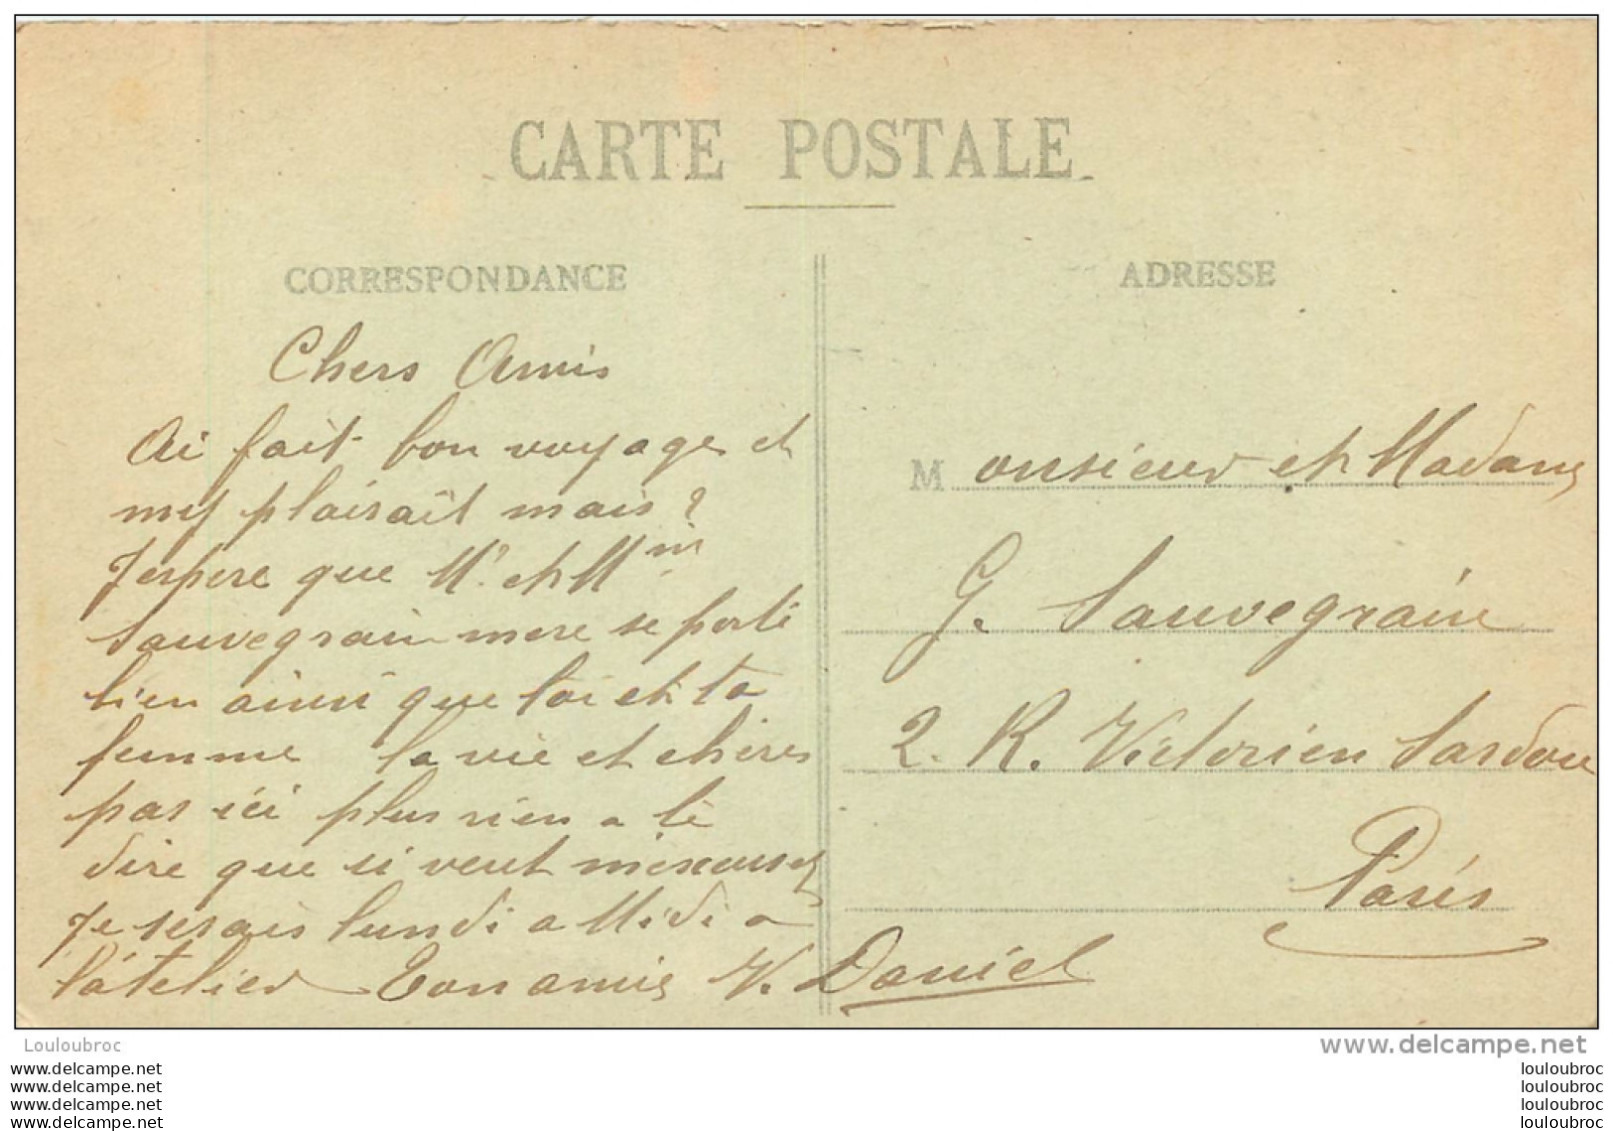 CARTE POSTALE
CORRESPONDANCE
Chers Amis
Ai fait bon voyage et
my plairait mais ?
Jespere que Mr et Mm
Sauvegrain mere se porte
bien ainsi que toi et ta
femme la vie et chères
pas ici plus rien a te
dire que si veut mexcuser
Je serais lundi a Midi a
l'atelier Ton amis V. Daniel
ADRESSE
Monsieur et Madame
G. Sauvegrain
2. R. Victorien Sardou
Paris
Louloubroc
www.delcampe.net
www.delcampe.net
www.delcampe.net
www.delcampe.net
www.delcampe.net
louloubroc
louloubroc
louloubroc
louloubroc